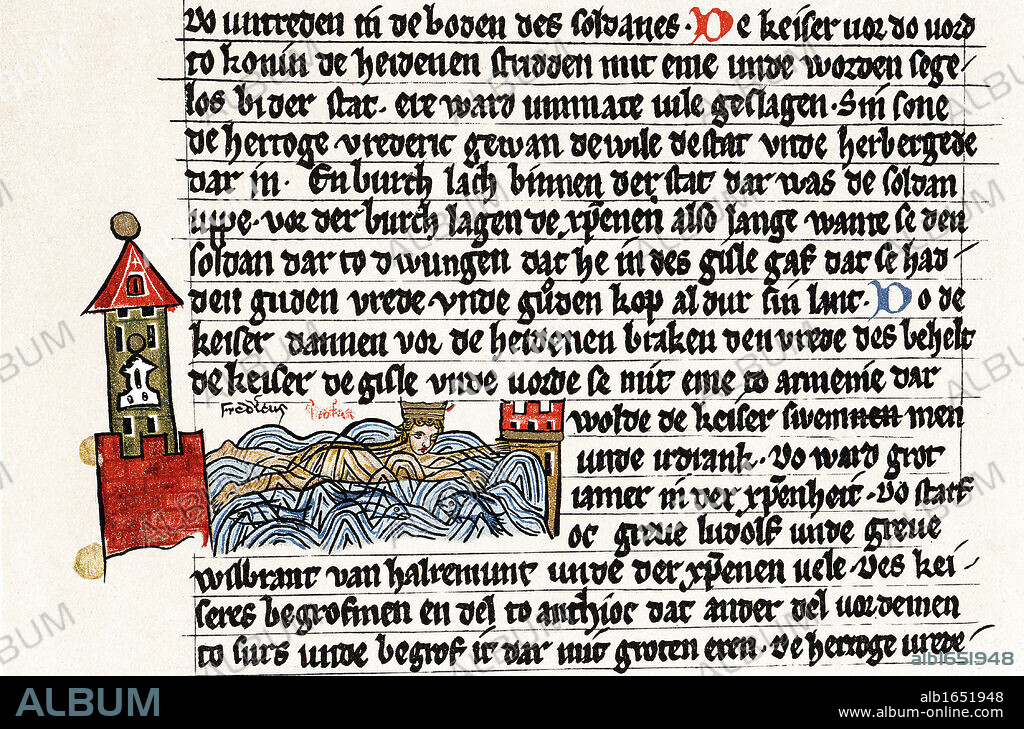 vo untreden in de boden des soldanes. De keiser vor do vord
to konin de heidenen stridden mit eme unde worden sege-
los bi der stat. ere ward unmate vile geslagen. Sin sone
de hertoge vrederic gewan de wile de stat vnde herbergede
dar in. En burch lach binnen der stat dar was de soldan
uppe. vor der burch lagen de xpenen also lange wante se den
soldan dar to dwungen dat he in des gisle gaf dat se had-
den guden vrede vnde guden kop al dur sin lant. Do de
keiser dannen vor de heidenen braken den vrede des behelt
de keiser de gisle vnde vorde se mit eme to armenie dar
Fredericus
wolde de keiser swemmen men
unde irdrank. Do ward grot
iamer in der xpenheit. Do starf
oc greve ludolf unde greve
wilbrant van halremunt unde der xpenen vele. Des kei-
seres begrofmen en del to anthioc dat ander del vordemen
to surs unde begrof it dar mit groten eren. De hertoge vrede-
ALBUM
alb1651948
ALBUM
alb1651948
www.album-online.com